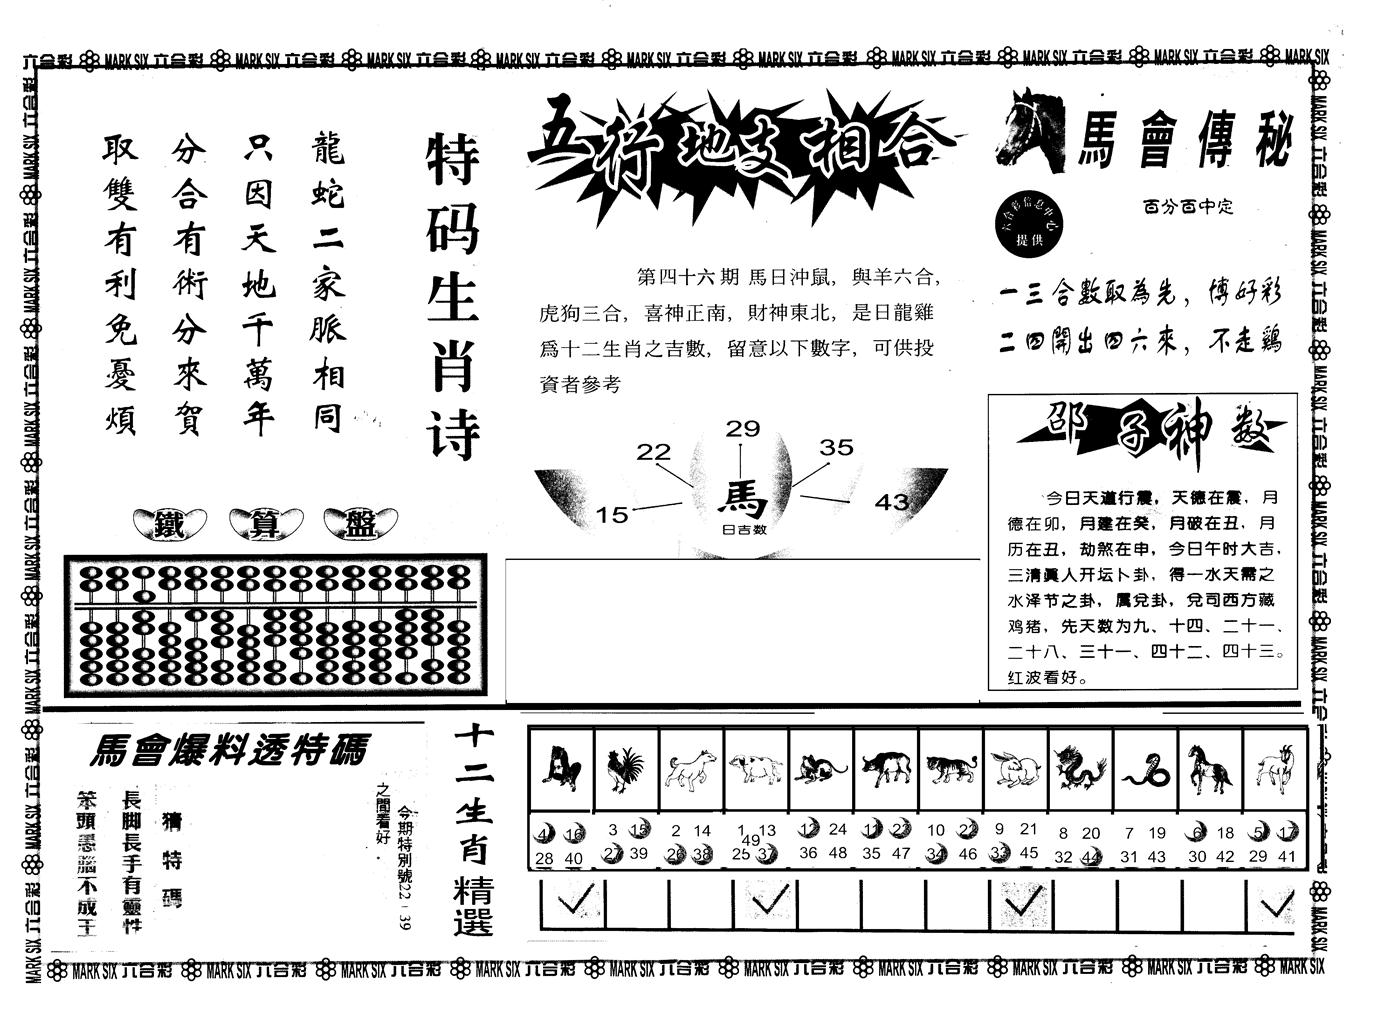 六合彩 MARK SIX 六合彩 MARK SIX 六合彩 MARK SIX 六合彩 MARK SIX 六合彩 MARK SIX 六合彩 MARK SIX 六合彩 MARK SIX 六合彩 MARK SIX 六合彩 MARK SIX 六合彩 MARK SIX
特码生肖诗
龍蛇二家脈相同
只因天地千萬年
分合有術分來賀
取雙有利免憂煩
鐵算盤
五行地支相合
第四十六期 馬日沖鼠，與羊六合，
虎狗三合，喜神正南，財神東北，是日龍雞
爲十二生肖之吉數，留意以下數字，可供投
資者參考
15
22
29
35
43
馬
日吉数
馬會傳秘
六合彩信息中心
提供
百分百中定
一三合數取為先，博好彩
二四開出四六來，不走鷄
邵子神数
今日天道行震，天德在震，月
德在卯，月建在癸，月破在丑，月
历在丑，劫煞在申，今日午时大吉，
三清眞人开坛卜卦，得一水天需之
水泽节之卦，属兌卦，兌司西方藏
鸡猪，先天数为九、十四、二十一、
二十八、三十一、四十二、四十三。
红波看好。
馬會爆料透特碼
今期特別號22－39
之間看好．
猜特碼
長脚長手有靈性
笨頭悪腦不成王
十二生肖精選
4 16 28 40
3 15 27 39
2 14 26 38
1 13 49 25 37
12 24 36 48
11 23 35 47
10 22 34 46
9 21 33 45
8 20 32 44
7 19 31 43
6 18 30 42
5 17 29 41
MARK SIX 六合彩 MARK SIX 六合彩 MARK SIX 六合彩 MARK SIX 六合彩 MARK SIX 六合彩 MARK SIX 六合彩 MARK SIX 六合彩 MARK SIX 六合彩 MARK SIX 六合彩 MARK SIX